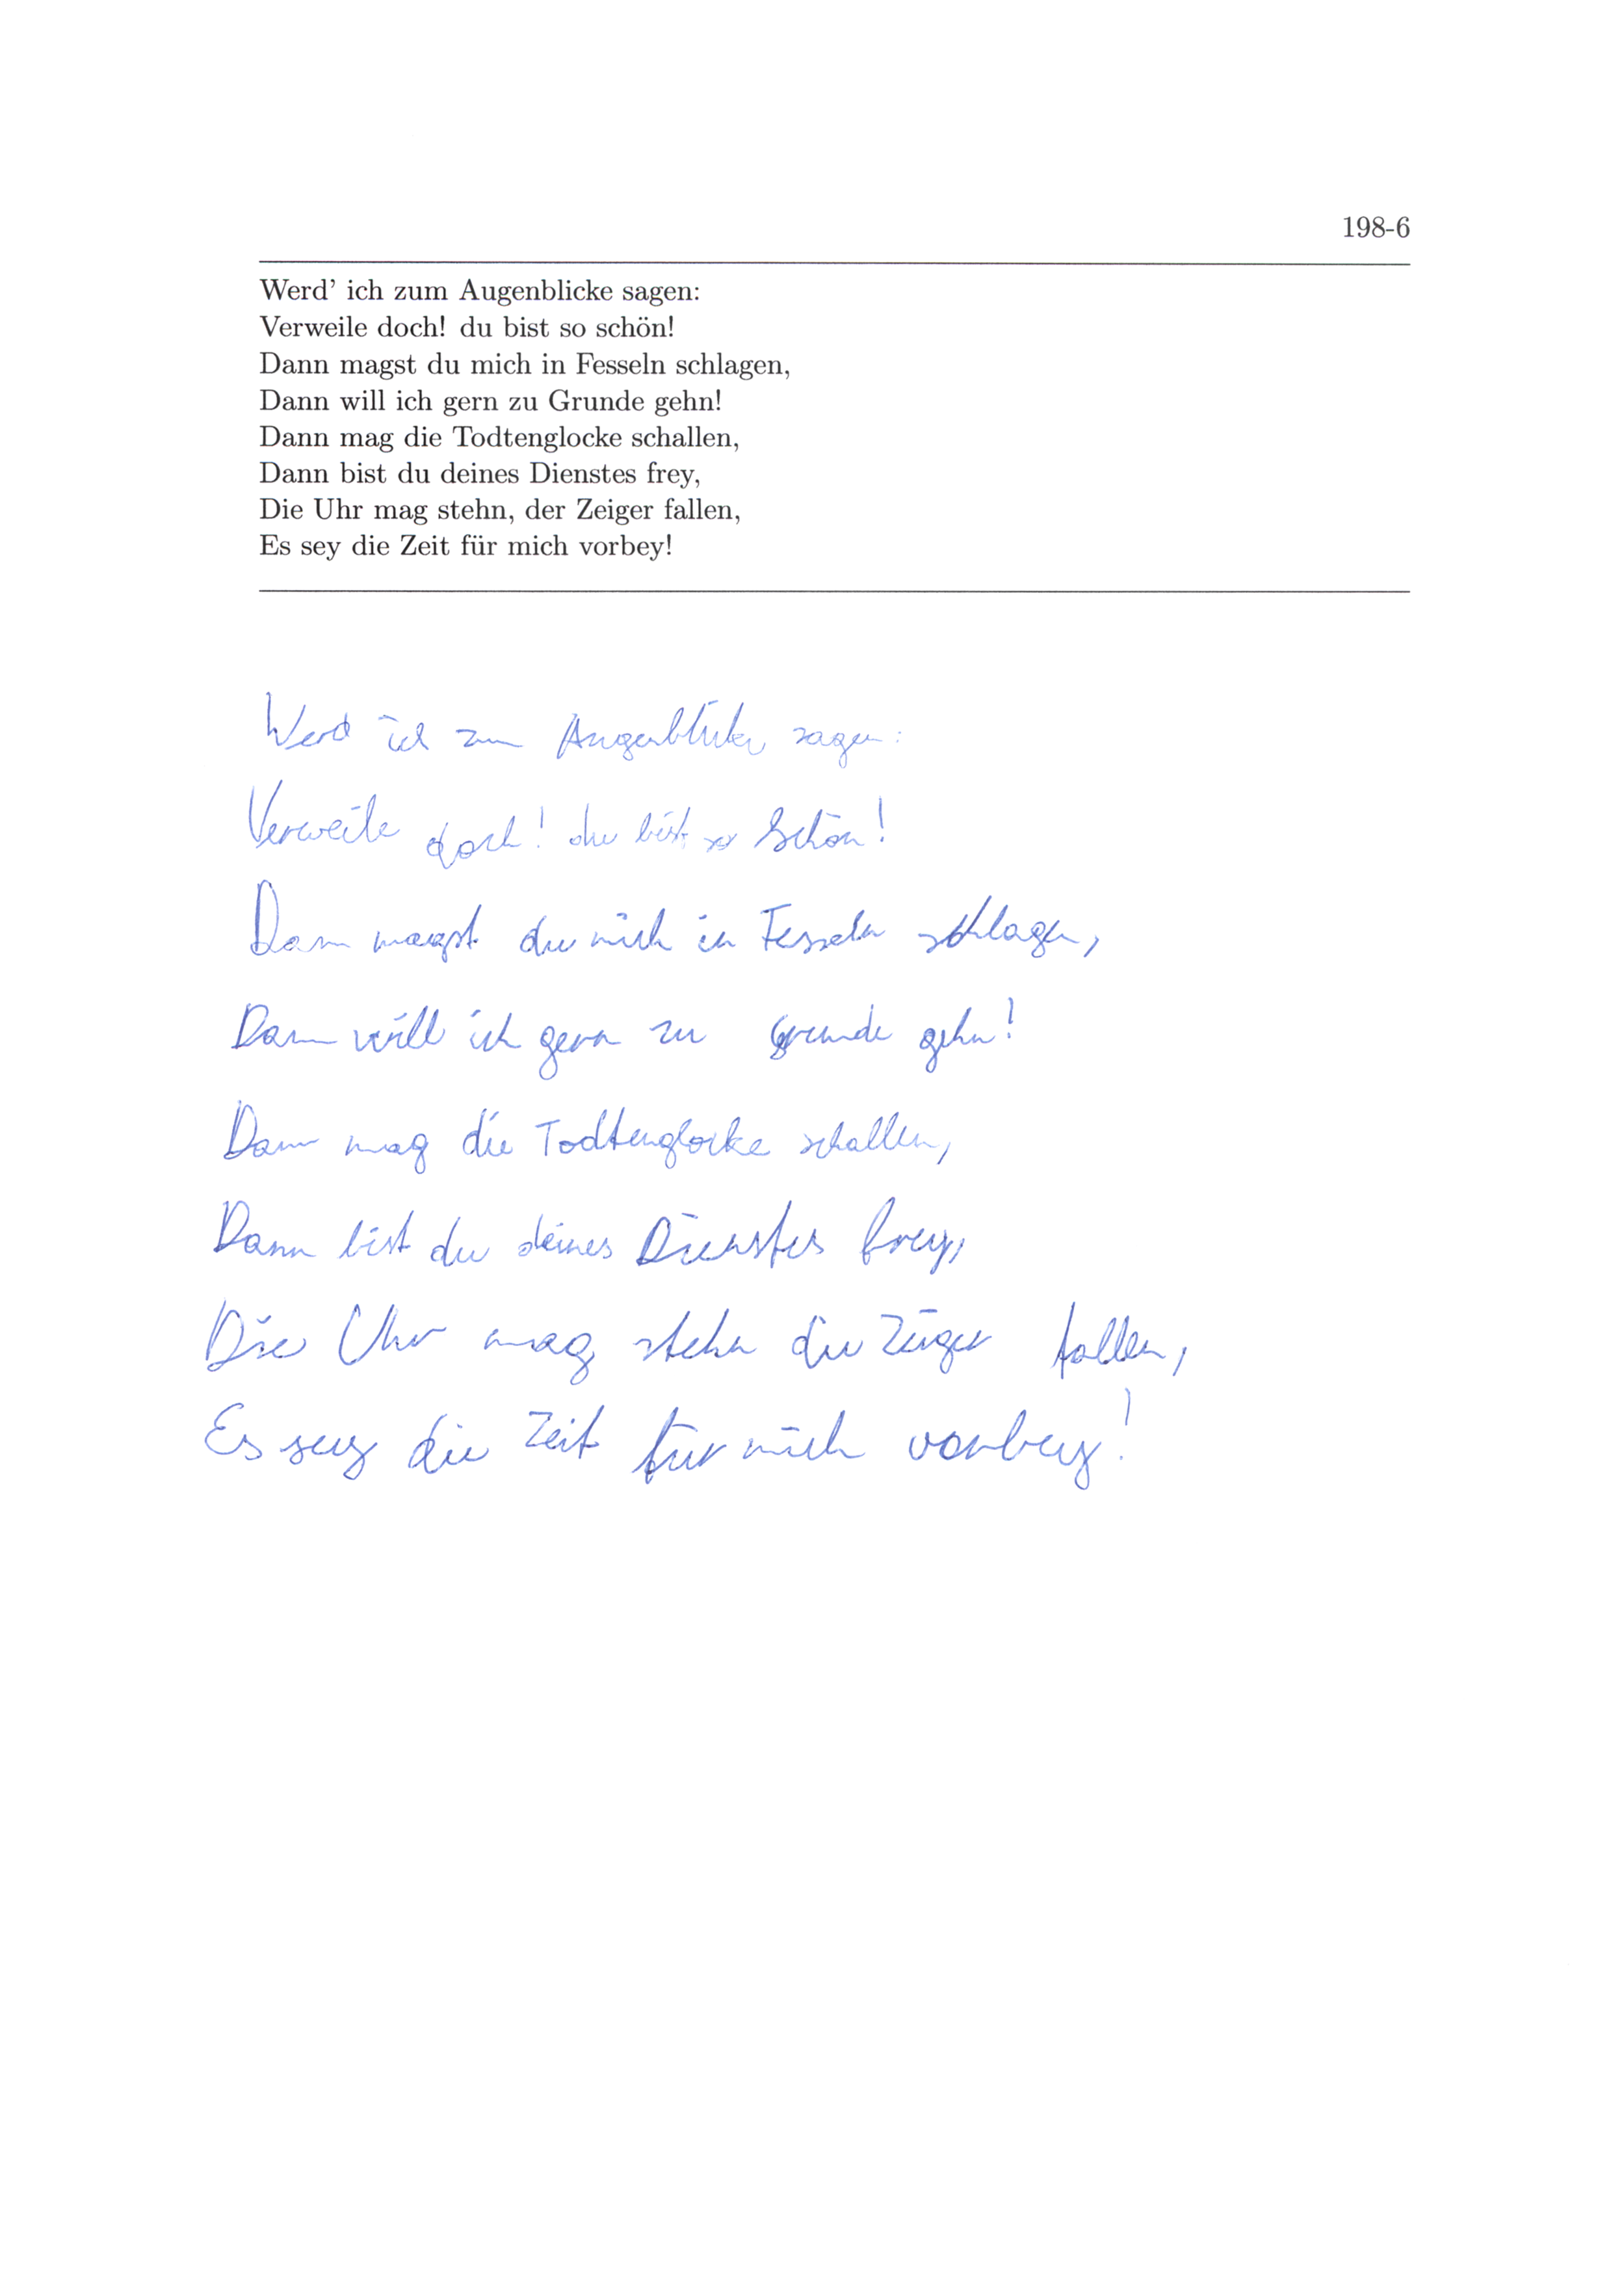 198-6
Werd' ich zum Augenblicke sagen:
Verweile doch! du bist so schön!
Dann magst du mich in Fesseln schlagen,
Dann will ich gern zu Grunde gehn!
Dann mag die Todtenglocke schallen,
Dann bist du deines Dienstes frey,
Die Uhr mag stehn, der Zeiger fallen,
Es sey die Zeit für mich vorbey!
Werd ich zum Augenblicke sagen:
Verweile doch! du bist so Schön!
Dann magst du mich in Fesseln schlagen,
Dann will ich gern zu Grunde gehn!
Dann mag die Todtenglocke schallen,
Dann bist du deines Dienstes frey,
Die Uhr mag stehn die Zeiger fallen,
Es sey die Zeit fur mich vorbey!